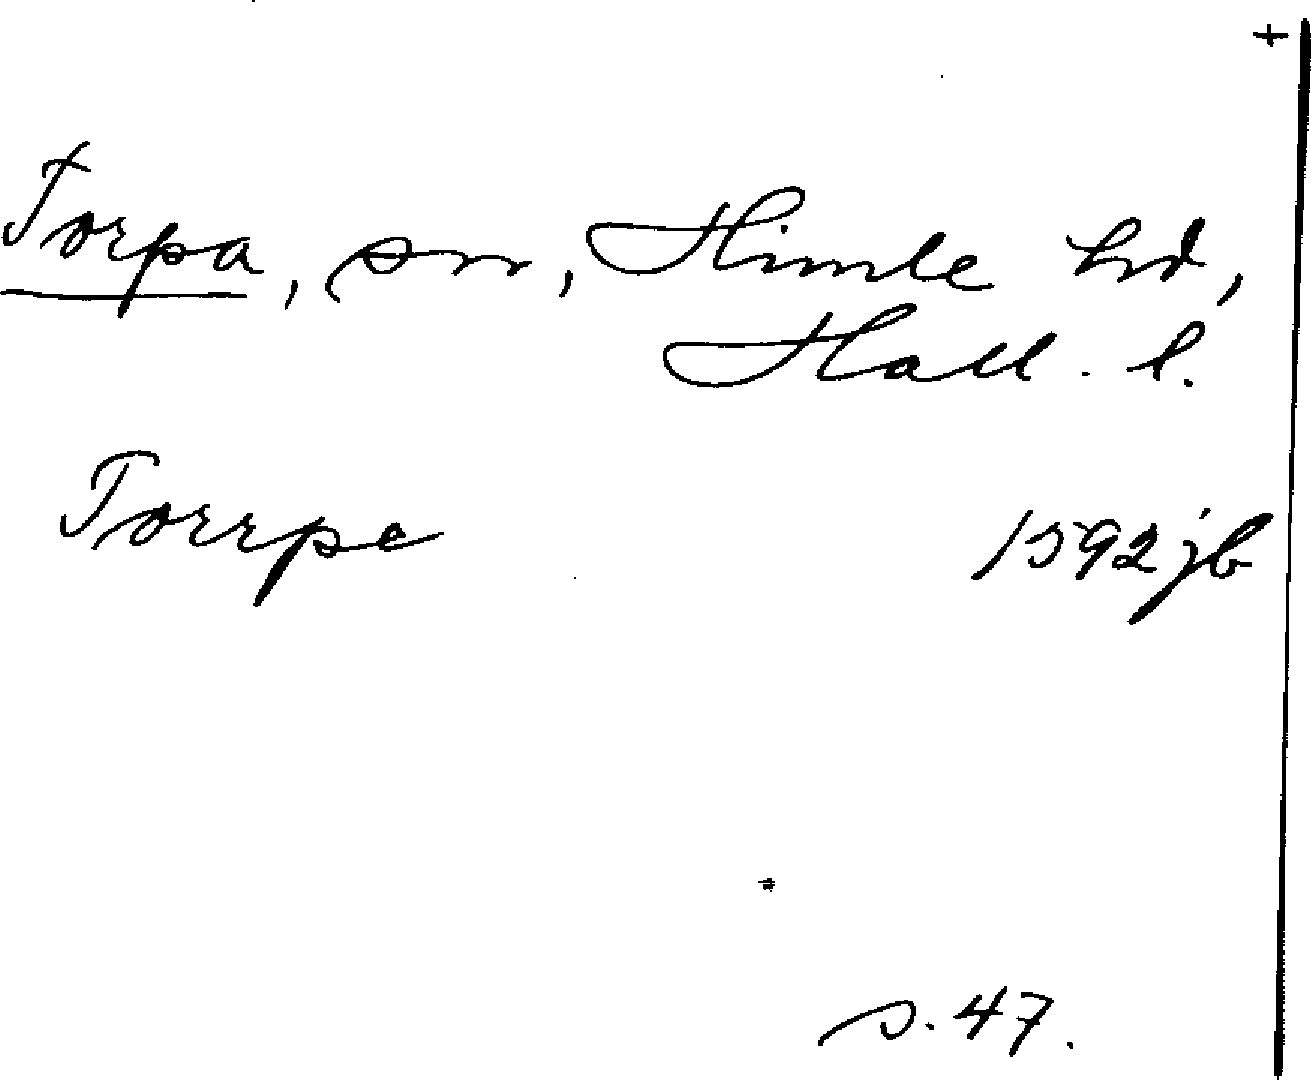 +
Torpa, sn, Himle hd,
Hall. l.
Torrpe 1592 jb
s. 47.